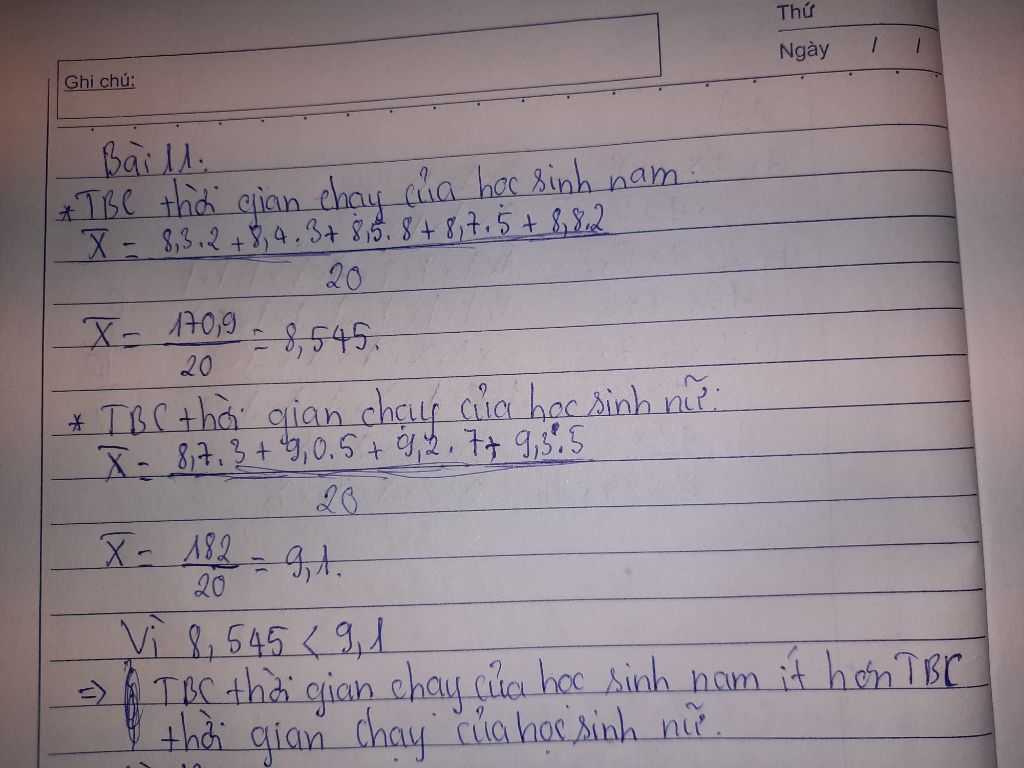 Thứ
Ngày / /
Ghi chú:
Bài 11:
* TBC thời gian chạy của học sinh nam:
X̅ = 8,3.2 + 8,4.3 + 8,5.8 + 8,7.5 + 8,8.2
20
X̅ = 170,9 = 8,545.
20
* TBC thời gian chạy của học sinh nữ:
X̅ = 8,7.3 + 9,0.5 + 9,2.7 + 9,3.5
20
X̅ = 182 = 9,1.
20
Vì 8,545 < 9,1
=> TBC thời gian chạy của học sinh nam ít hơn TBC
thời gian chạy của học sinh nữ.